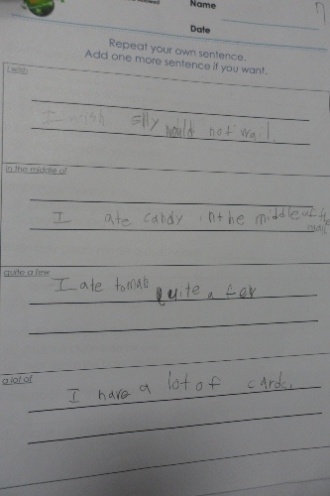 Name
Date
Repeat your own sentence.
Add one more sentence if you want.
I wish
I wish would not wail.
in the middle of
I ate candy in the middle of the
mall
quite a few
I ate tomato quite a few
a lot of
I have a lot of cards.